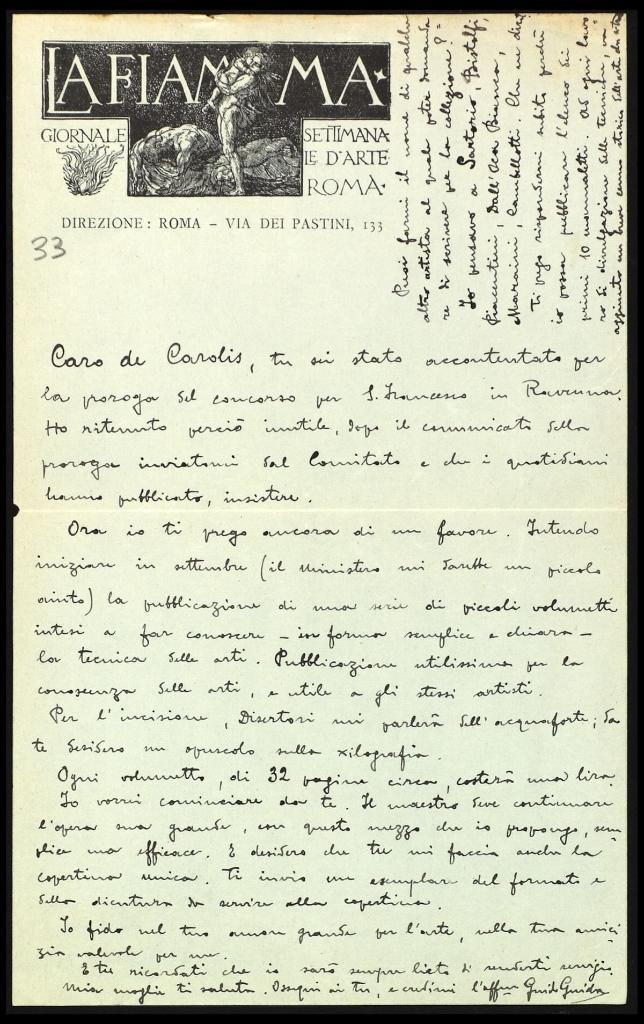 LA FIAMMA·
GIORNALE SETTIMANA
LE D'ARTE
ROMA·
DIREZIONE: ROMA - VIA DEI PASTINI, 133
33
Caro de Carolis, tu sei stato accontentato per
la proroga del concorso per S. Francesco in Ravenna.
Ho ritenuto perciò inutile, dopo il comunicato della
proroga inviatomi dal Comitato e che i quotidiani
hanno pubblicato, insistere.
Ora io ti prego ancora di un favore. Intendo
iniziare in settembre (il Ministero mi darebbe un piccolo
aiuto) la pubblicazione di una serie di piccoli volumetti
intesi a far conoscere - in forma semplice e chiara -
la tecnica delle arti. Pubblicazione utilissima per la
conoscenza delle arti, e utile a gli stessi artisti.
Per l'incisione, Disertori mi parlerà dell'acquaforte; da
te desidero un opuscolo sulla xilografia.
Ogni volumetto, di 32 pagine circa, costerà una lira.
Io vorrei cominciare da te. Il maestro deve continuare
l'opera sua grande, con questo mezzo che io propongo, sem
plice ma efficace. E desidero che tu mi faccia anche la
copertina unica. Ti invio un esemplare del formato e
della dicitura da servire alla copertina.
Io fido nel tuo amore grande per l'arte, nella tua amici
zia valevole per me.
E tu ricordati che io sarò sempre lieto di renderti servigi.
Mia moglie ti saluta. Ossequi ai tuoi, e credimi l'aff.mo Guido Guida
Puoi farmi il nome di qualche
altro artista al quale poter domanda
re di scrivere per la collezione? =
Io pensavo a Sartorio, Bistolfi,
Piacentini, Dall'Oca Bianca,
Maraini, Cambellotti. Che ne dici?
Ti prego rispondermi subito perchè
io possa pubblicare l'elenco dei
primi 10 manualetti. Ad ogni lavo
ro di divulgazione della tecnica, va
aggiunto un breve cenno storico dell'arte